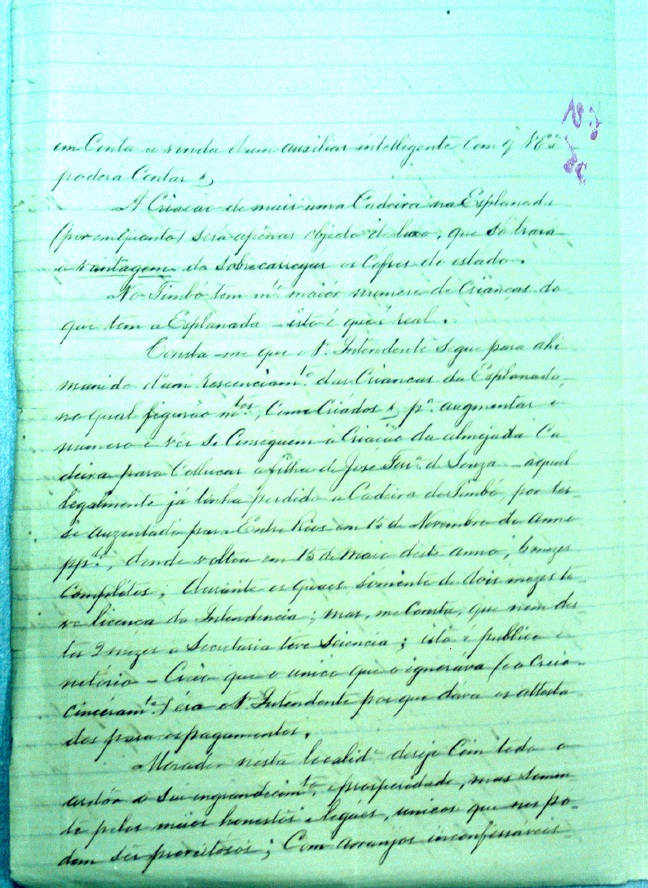 em Conta a vinda d'um auxiliar intelligente Com q' V Exª
podera Contar
A Criacão de mais uma Cadeira na Esplanada
(por em quanto) será apenas objecto de luxo, que só trará
a vantagem da sobrecarregar os Cofres do estado.
No Timbó tem mtº maior numero de Criancas do
que tem a Esplanada - isto é que é real.
Consta-me que o N. Intendente segue para ahi
munido d'um rescenciamtº das Criancas da Esplanada,
no qual figurão mtos, Como Criados, pª augmentar o
numero e vêr se Conseguem a Criacão da almejada Ca
deira para Collocar a filha de José Ferª de Souza - a qual
legalmente já tinha perdido a Cadeira do Timbó, por ter-
se auzentado para Entre Rios em 15 de Novembro do anno
pptº, donde voltou em 15 de Maio deste anno, 6 mezes
Completos, durante os quaes sómente de dois mezes te
ve licença da Intendencia; mas, me Consta, que nem des
tes 2 mezes a Secretaria teve siencia; isto é publico e
notório - Creio que o unico que o ignorava (e o Creio
cinceramtº) éra o N. Intendente por que dava os attesta
dos para os pagamentos.
Morador nesta localidº desejo Com todo o
ardôr o seu ingrandecimtº e prosperidade, mas somen
te pelos meios honestos e legáes, unicos que nos po-
dem ser proveitosos; Com arranjos inconfessaveis